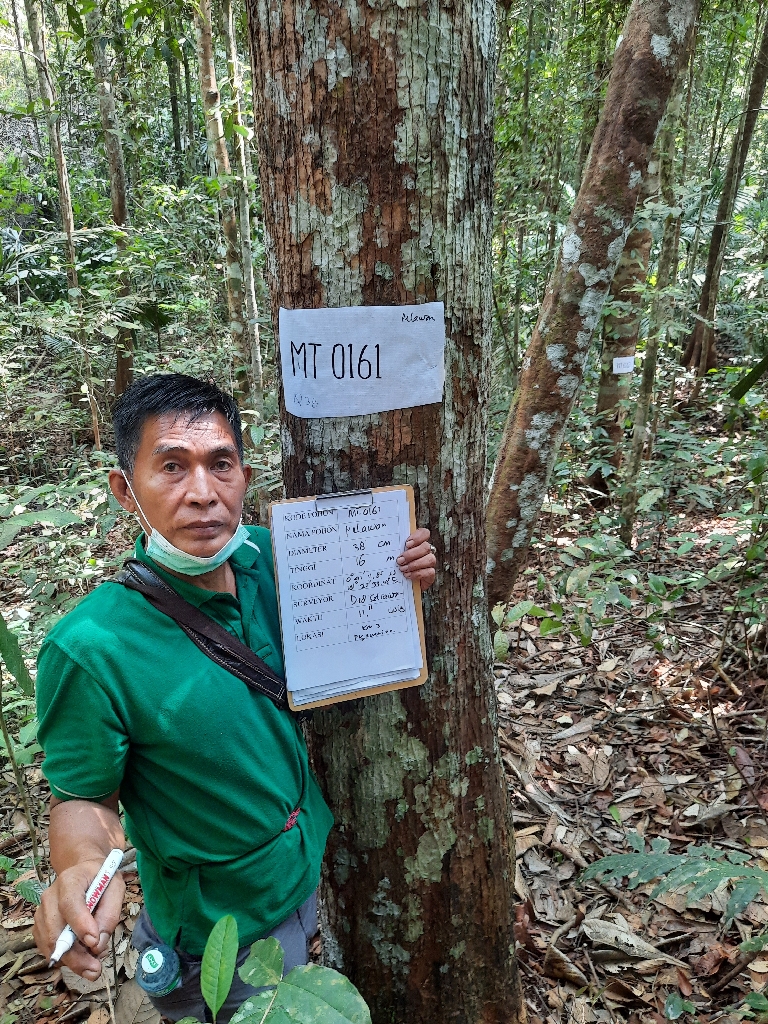 Melawan
MT 0161
KODE POHON MT 0161
NAMA POHON Melawan
DIAMETER 38 cm
TINGGI 16 m
KOORDINAT
SURVEYOR
WAKTU 11,11 WIB
LOKASI
SNOWMAN